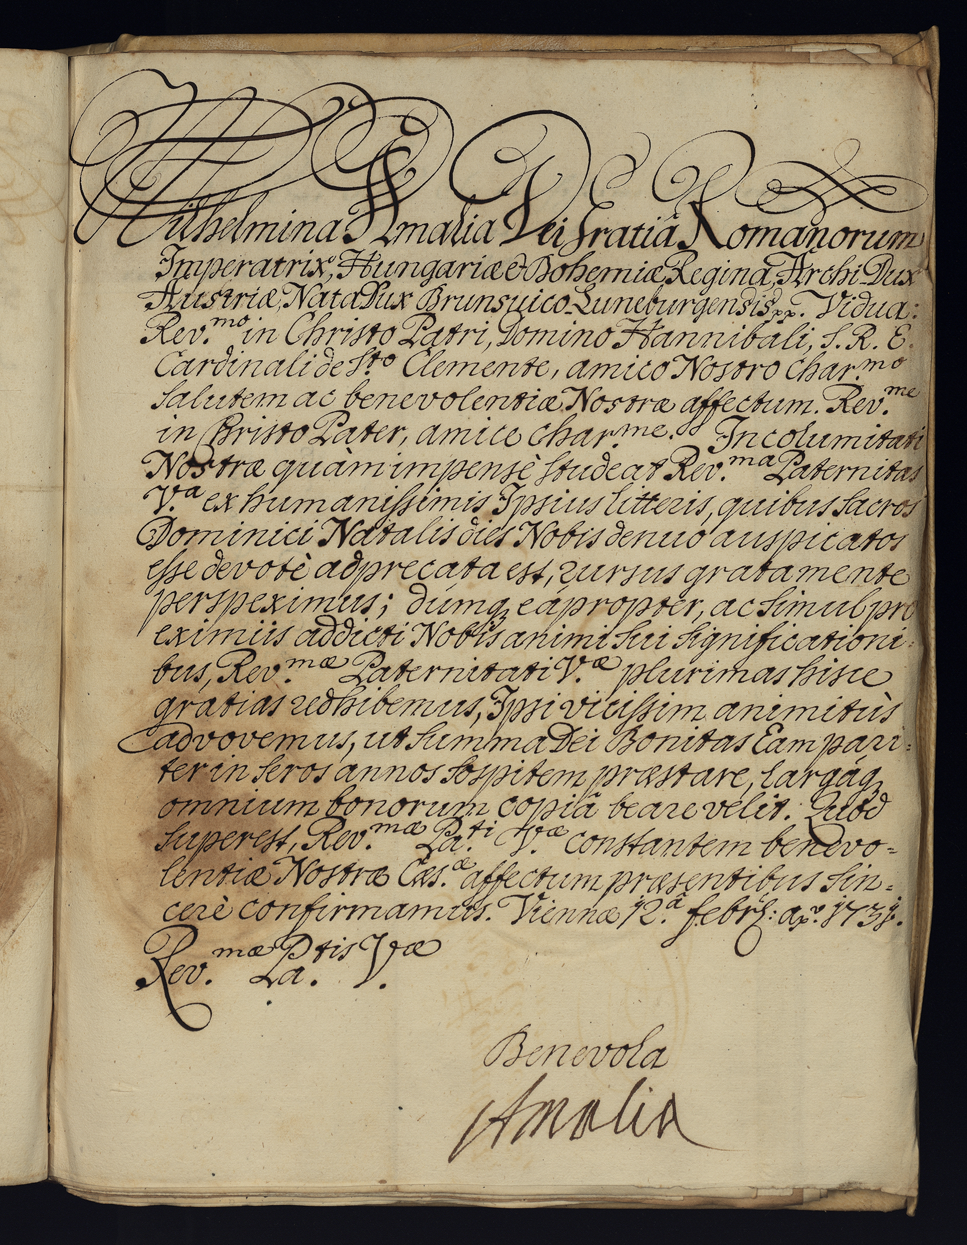 Wilhelmina Amalia Dei Gratiâ Romanorum
Imperatrix, Hungariæ & Bohemiæ Regina, Archi-Dux
Austriæ, Nata Dux Brunsuico-Luneburgensis pp. Vidua:
Rev.mo in Christo Patri, Domino Hannibali, S. R. E.
Cardinali de S.to Clemente, amico Nostro Char.mo
salutem ac benevolentiæ Nostræ affectum. Rev.me
in Christo Pater, amice Char.me. Incolumitati
Nostræ quàm impensè studeat Rev.ma Paternitas
V.a ex humanissimis Ipsius litteris, quibus sacros
Dominici Natalis dies Nobis denuo auspicatos
esse devotè adprecata est, rursus grata mente
perspeximus; dumq, eapropter, ac simul pro
eximiis addicti Nobis animi sui significationi-
bus, Rev.mæ Paternitati V.æ plurimas hisce
gratias redhibemus, Ipsi vicissim animitùs
advovemus, ut summa Dei Bonitas Eam pari-
ter in seros annos sospitem præstare, largáq,
omnium bonorum copiâ beare velit. Quod
superest, Rev.mæ Pa.ti V.æ constantem benevo-
lentiæ Nostræ Cæs.æ affectum præsentibus sin-
cerè confirmamus. Viennæ 12.a febr: aº. 1731.
Rev.mæ Pa.tis V.æ
Benevola
Amalia